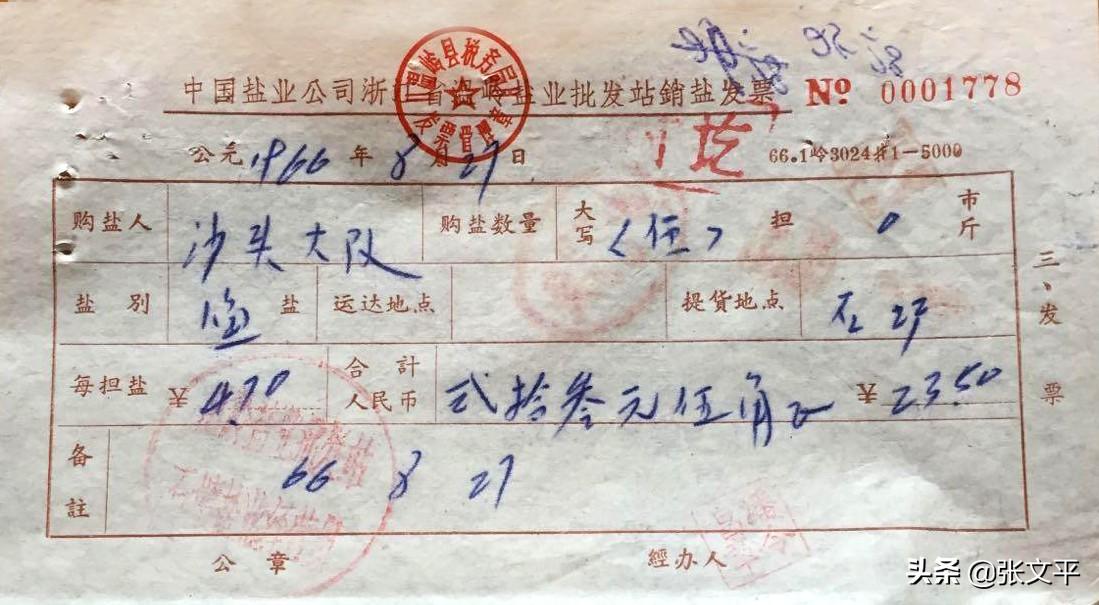 温岭县税务局
发票监制章
中国盐业公司浙江省温岭盐业批发站銷盐发票 № 0001778
公元 1966 年 8 月 27 日 66.1岭3024#1—5000
讫
购盐人 沙头大队 购盐数量 大写 〈伍〉 担 0 市斤
盐别 渔 盐 运达地点 提货地点 石 27
每担盐 ¥ 4.70 合計人民币 弍拾叁元伍角正 ¥ 23.50
备註 66 8 27
三、发票
公章 經办人
头条 @张文平